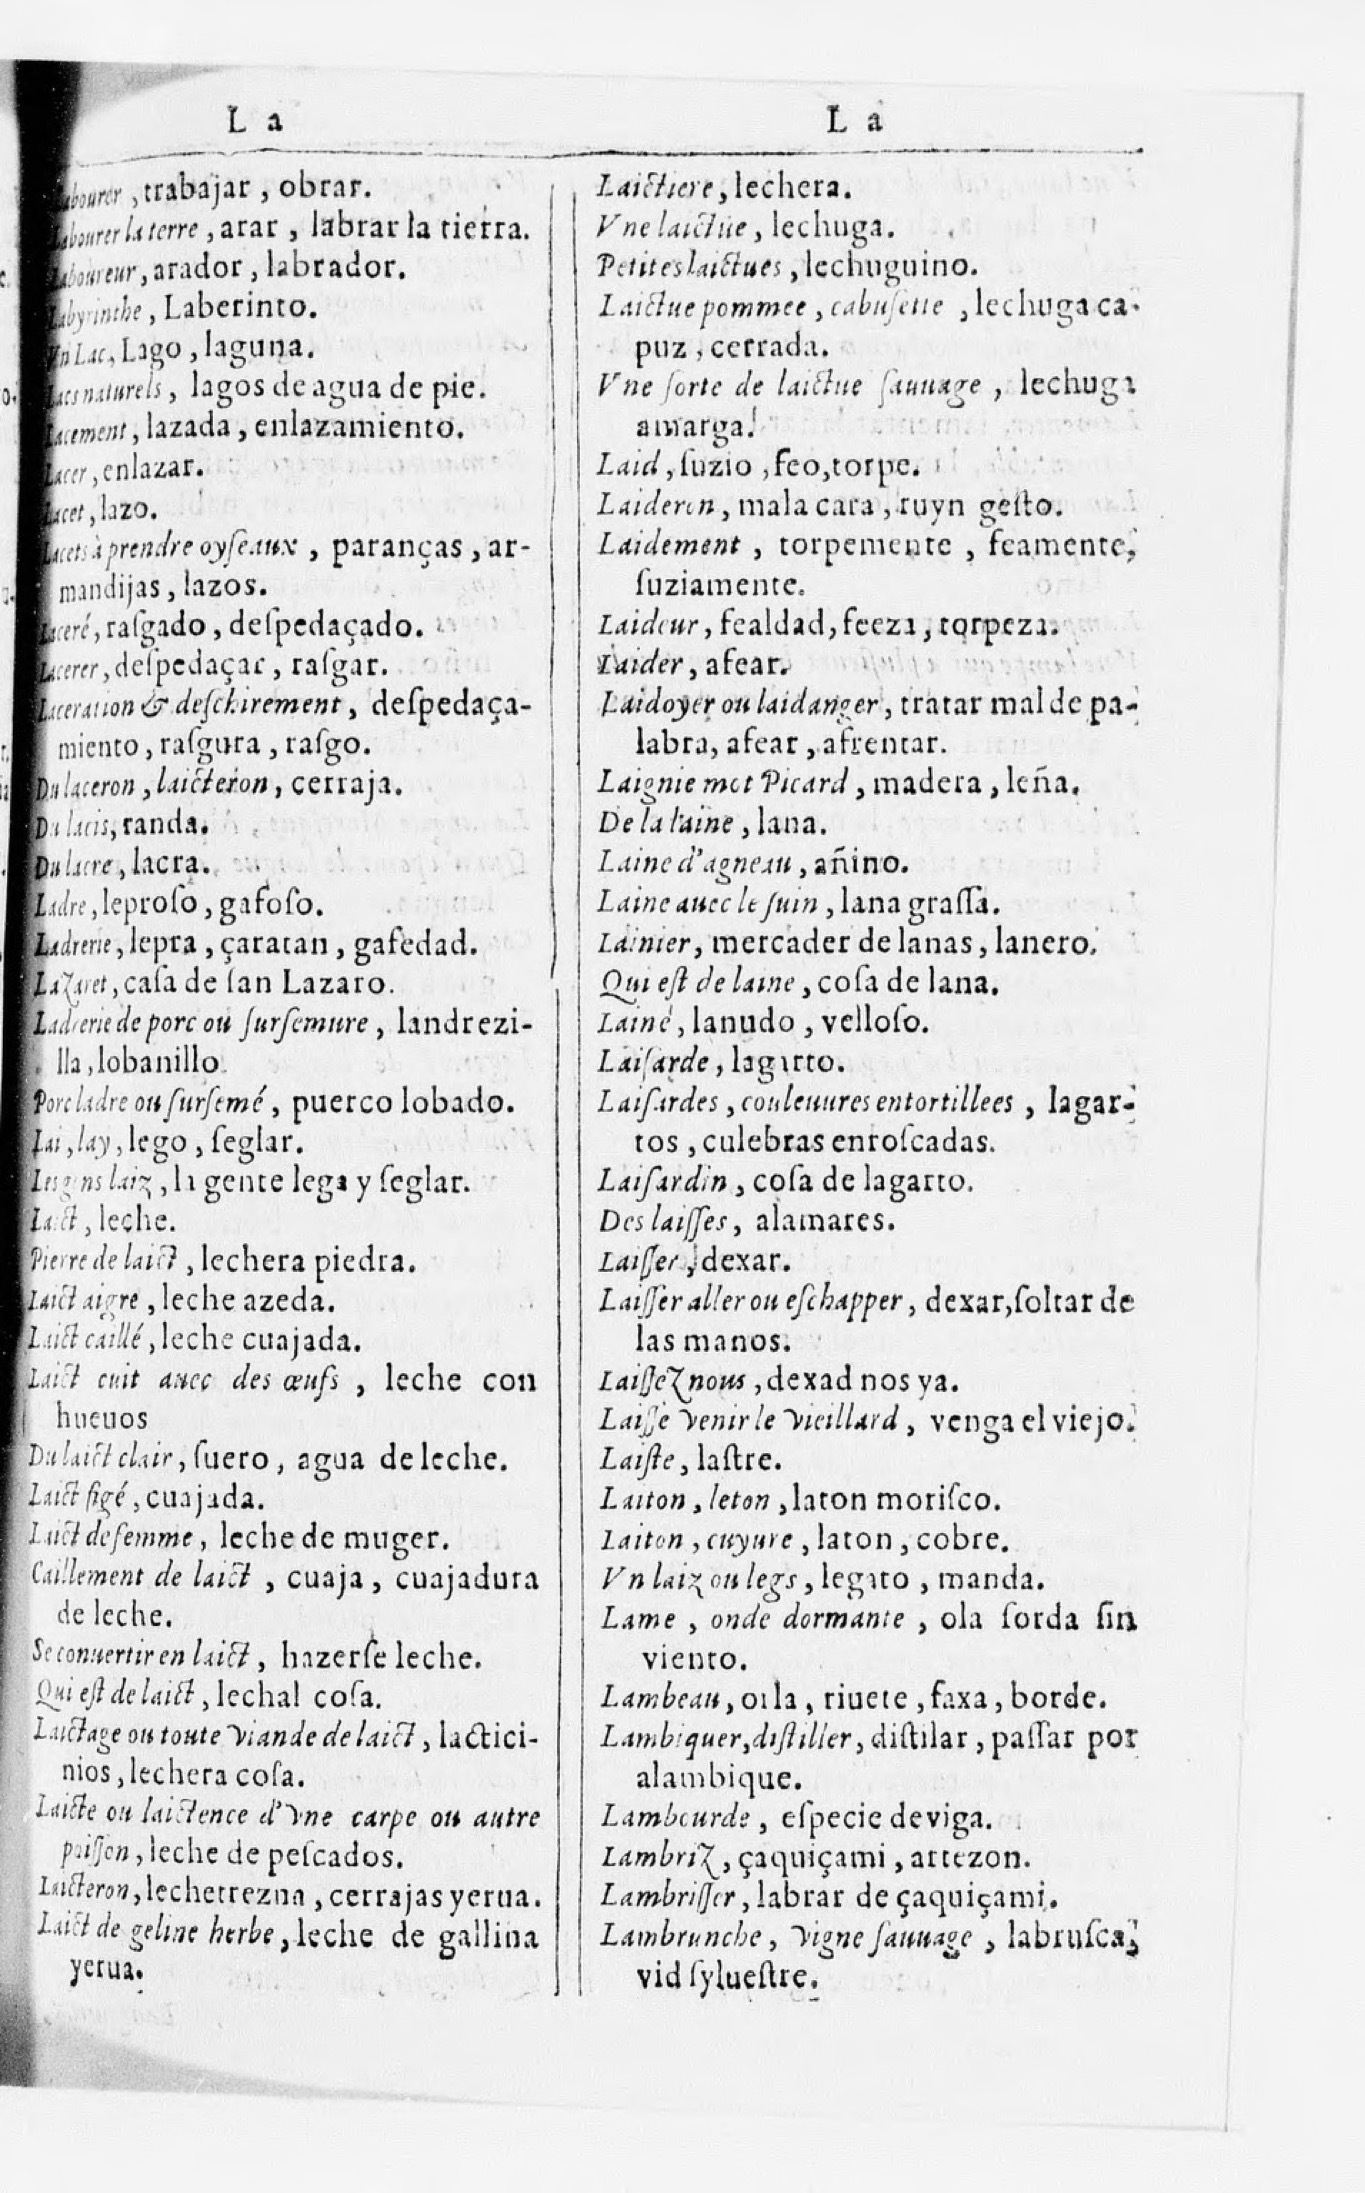 L a
Labourer, trabajar, obrar.
Labourer la terre, arar, labrar la tierra.
Laboureur, arador, labrador.
Labyrinthe, Laberinto.
Vn Lac, Lago, laguna.
Lacs naturels, lagos de agua de pie.
Lacement, lazada, enlazamiento.
Lacer, enlazar.
Lacet, lazo.
Lacets à prendre oyſeaux, paranças, ar-
mandijas, lazos.
Laceré, raſgado, deſpedaçado.
Lacerer, deſpedaçar, raſgar.
Laceration & deſchirement, deſpedaça-
miento, raſgura, raſgo.
Du laceron, laicteron, cerraja.
Du lacis, randa.
Du lacre, lacra.
Ladre, leproſo, gafoſo.
Ladrerie, lepra, çaratan, gafedad.
Lazaret, caſa de ſan Lazaro.
Ladrerie de porc ou ſurſemure, landrezi-
lla, lobanillo.
Porc ladre ou ſurſemé, puerco lobado.
Lai, lay, lego, ſeglar.
Les gens laiz, la gente lega y ſeglar.
Laict, leche.
Pierre de laict, lechera piedra.
Laict aigre, leche azeda.
Laict caillé, leche cuajada.
Laict cuit auec des œufs, leche con
hueuos
Du laict clair, ſuero, agua de leche.
Laict figé, cuajada.
Laict de femme, leche de muger.
Caillement de laict, cuaja, cuajadura
de leche.
Se conuertir en laict, hazerſe leche.
Qui eſt de laict, lechal coſa.
Laictage ou toute viande de laict, lactici-
nios, lechera coſa.
Laicte ou laictence d'vne carpe ou autre
poiſſon, leche de peſcados.
Laicteron, lechetrezna, cerrajas yerua.
Laict de geline herbe, leche de gallina
yerua.
L a
Laictiere, lechera.
Vne laictüe, lechuga.
Petites laictues, lechuguino.
Laictue pommee, cabuſette, lechuga ca-
puz, cerrada.
Vne ſorte de laictue ſauuage, lechuga
amarga.
Laid, ſuzio, feo, torpe.
Laideron, mala cara, ruyn geſto.
Laidement, torpemente, feamente,
ſuziamente.
Laideur, fealdad, feeza, torpeza.
Laider, afear.
Laidoyer ou laidanger, tratar mal de pa-
labra, afear, afrentar.
Laignie mot Picard, madera, leña.
De la laine, lana.
Laine d'agneau, añino.
Laine auec le ſuin, lana graſſa.
Lainier, mercader de lanas, lanero.
Qui eſt de laine, coſa de lana.
Lainé, lanudo, velloſo.
Laiſarde, lagarto.
Laiſardes, couleuures entortillees, lagar-
tos, culebras enroſcadas.
Laiſardin, coſa de lagarto.
Des laiſſes, alamares.
Laiſſer, dexar.
Laiſſer aller ou eſchapper, dexar, ſoltar de
las manos.
Laiſſez nous, dexad nos ya.
Laiſſe venir le vieillard, venga el viejo.
Laiſte, laſtre.
Laiton, leton, laton moriſco.
Laiton, cuyure, laton, cobre.
Vn laiz ou legs, legato, manda.
Lame, onde dormante, ola ſorda ſin
viento.
Lambeau, orla, riuete, faxa, borde.
Lambiquer, diſtiller, diſtilar, paſſar por
alambique.
Lambourde, eſpecie de viga.
Lambriz, çaquiçami, artezon.
Lambriſſer, labrar de çaquiçami.
Lambrunche, vigne ſauuage, labruſca,
vid ſylueſtre.